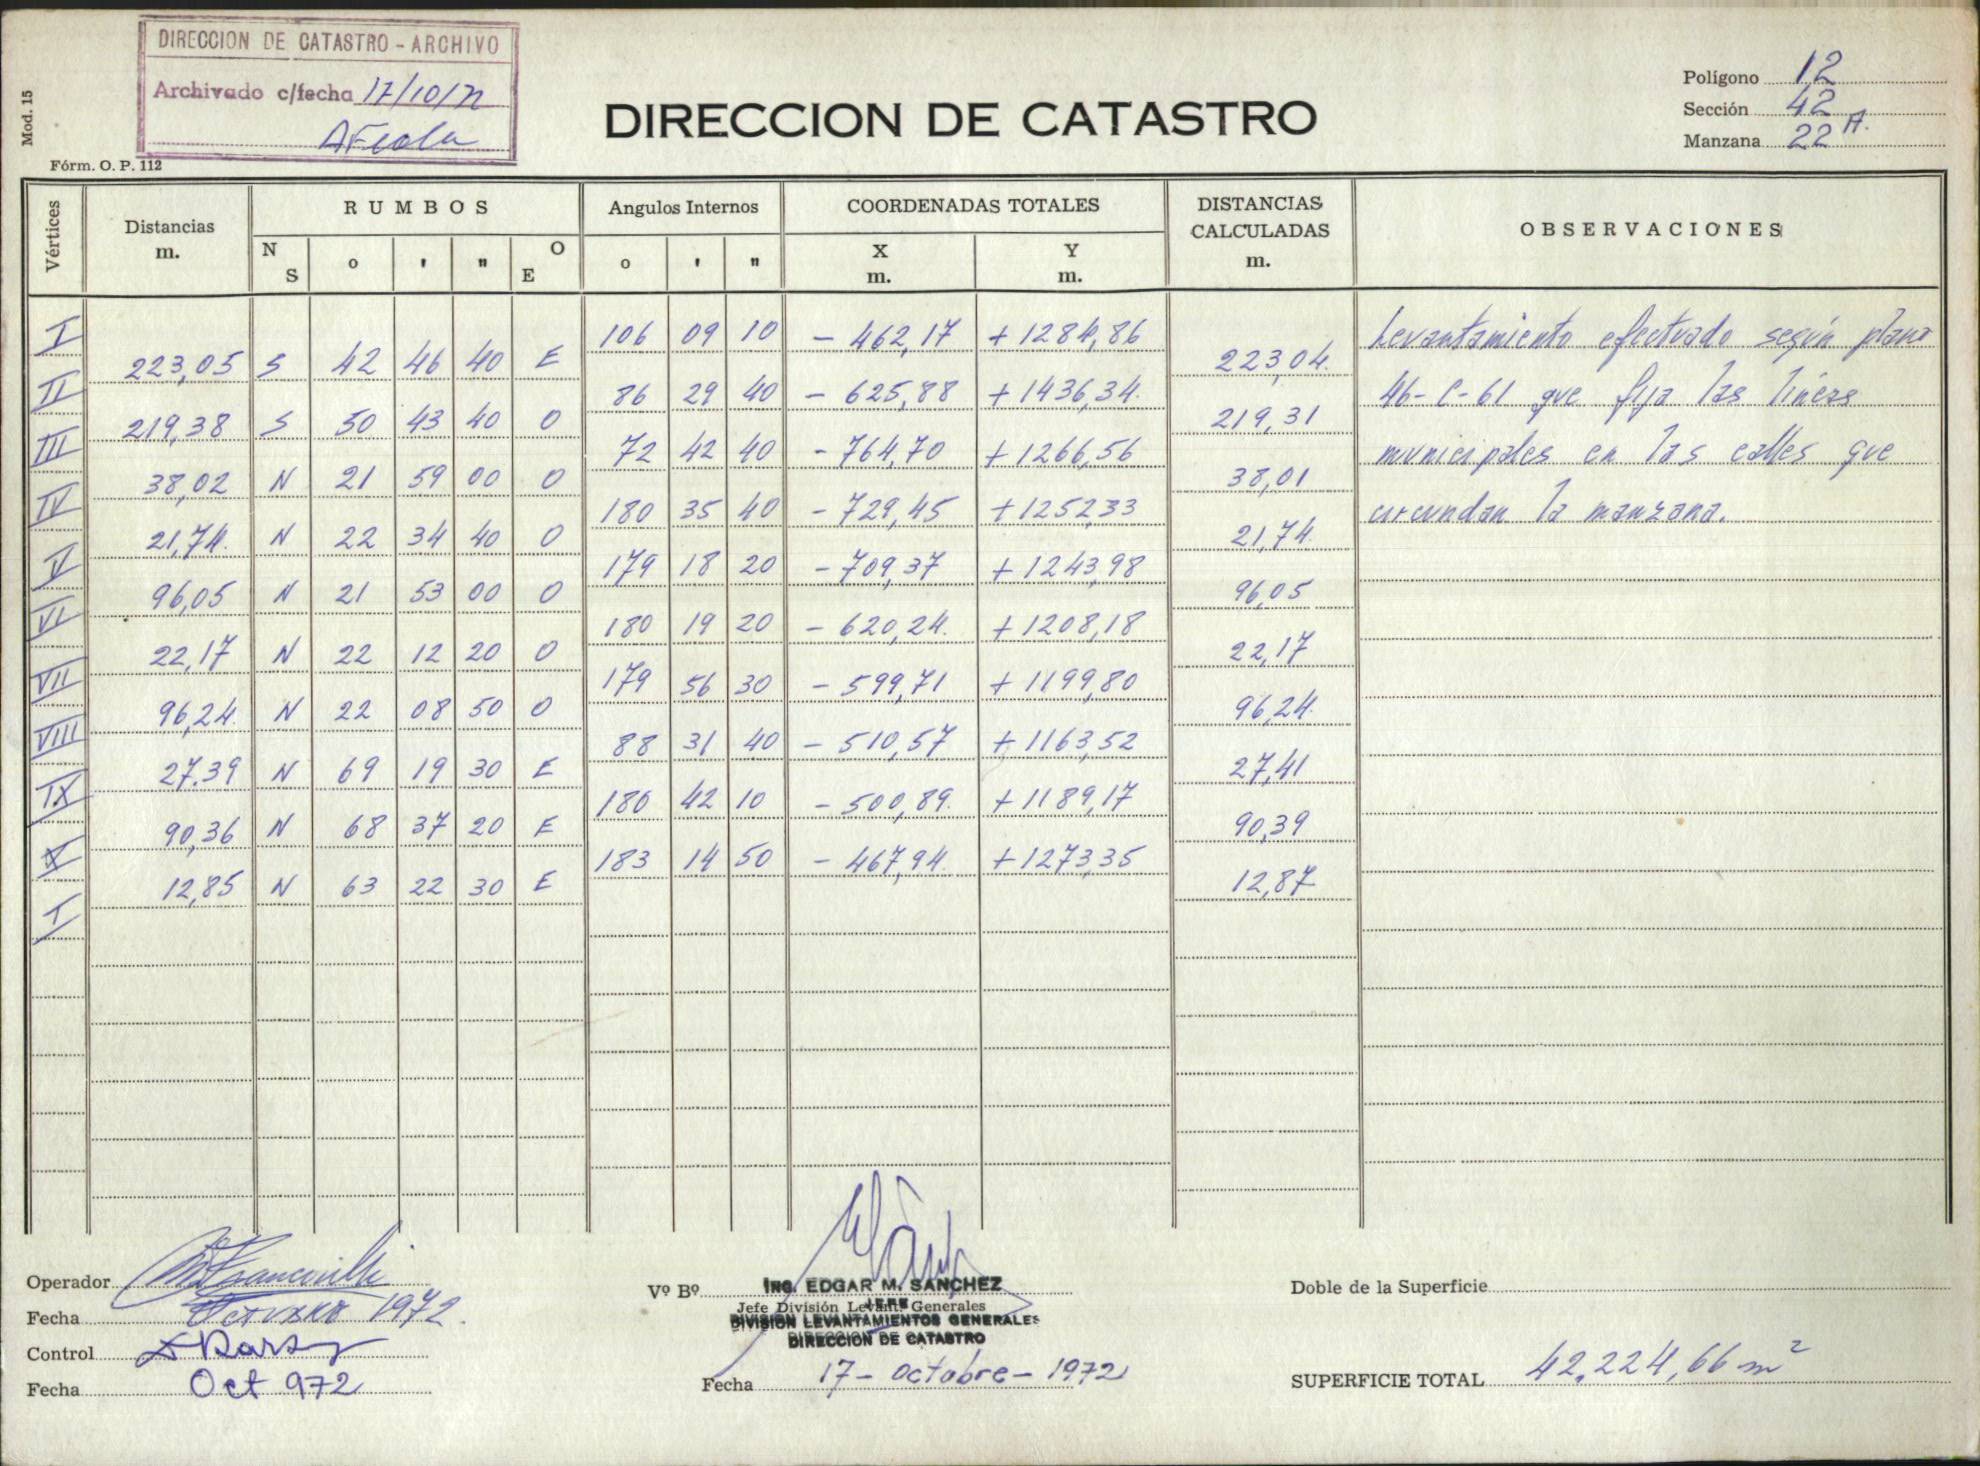 DIRECCION DE CATASTRO - ARCHIVO
Archivado c/fecha 17/10/72
Mod. 15
Fórm. O. P. 112
DIRECCION DE CATASTRO
Polígono 12
Sección 42
Manzana 22 A.
Vértices Distancias m. RUMBOS N S o ' " O E Angulos Internos o ' " COORDENADAS TOTALES X m. Y m. DISTANCIAS CALCULADAS m. OBSERVACIONES
I 106 09 10 - 462,17 + 1284,86 Levantamiento efectuado según plano
223,05 S 42 46 40 E 223,04.
II 86 29 40 - 625,88 + 1436,34. 46-C-61 que fija las líneas
219,38 S 50 43 40 O 219,31
III 72 42 40 - 764,70 + 1266,56 municipales en las calles que
38,02 N 21 59 00 O 38,01
IV 180 35 40 - 729,45 + 1252,33 circundan la manzana.
21,74. N 22 34 40 O 21,74.
V 179 18 20 - 709,37 + 1243,98
96,05 N 21 53 00 O 96,05
VI 180 19 20 - 620,24. + 1208,18
22,17 N 22 12 20 O 22,17
VII 179 56 30 - 599,71 + 1199,80
96,24. N 22 08 50 O 96,24.
VIII 88 31 40 - 510,57 + 1163,52
27,39 N 69 19 30 E 27,41
IX 180 42 10 - 500,89. + 1189,17
90,36 N 68 37 20 E 90,39
X 183 14 50 - 467,94. + 1273,35
12,85 N 63 22 30 E 12,87
I
Operador
Fecha Octubre 1972.
Control
Fecha Oct 972
Vº Bº ING. EDGAR M. SANCHEZ
Jefe División Levant. Generales
JEFE
DIVISION LEVANTAMIENTOS GENERALES
DIRECCION DE CATASTRO
Fecha 17- octobre - 1972
Doble de la Superficie
SUPERFICIE TOTAL 42.224,66 m²